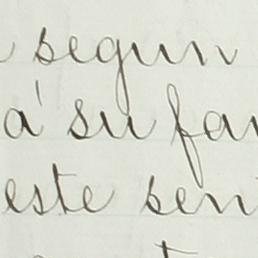 segun
á su fa
este sen